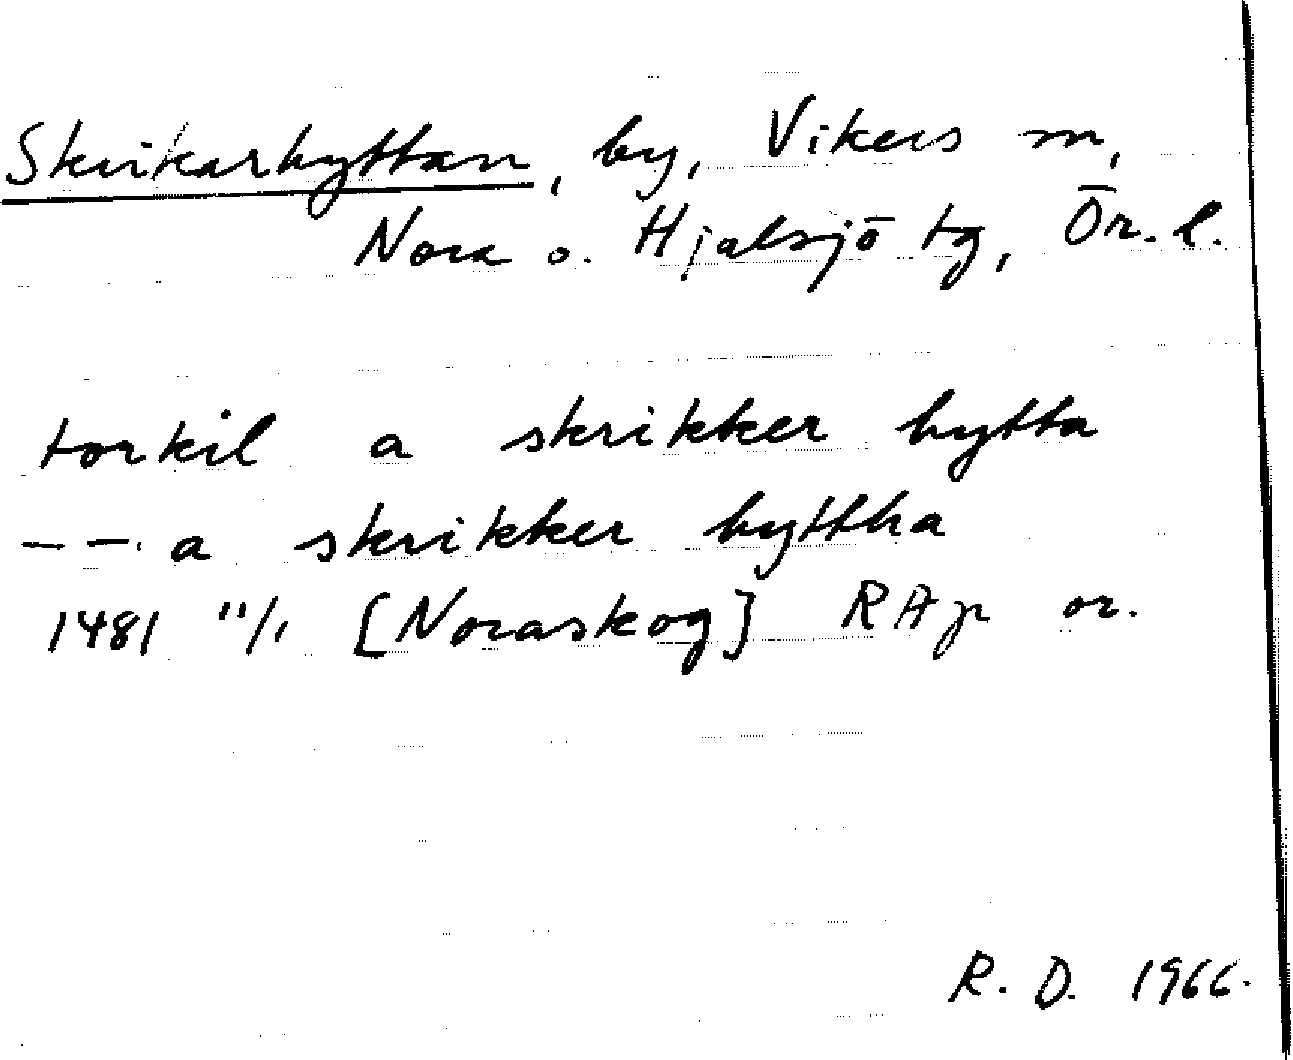 Skrikarhyttan, by, Vikers sn,
Nora o. Hjulsjö tg, Ör. l.
torkil a skrikker hytta
- - . a skrikker hyttha
1481 11/1 [Noraskog] RAp or.
R. D. 1966.